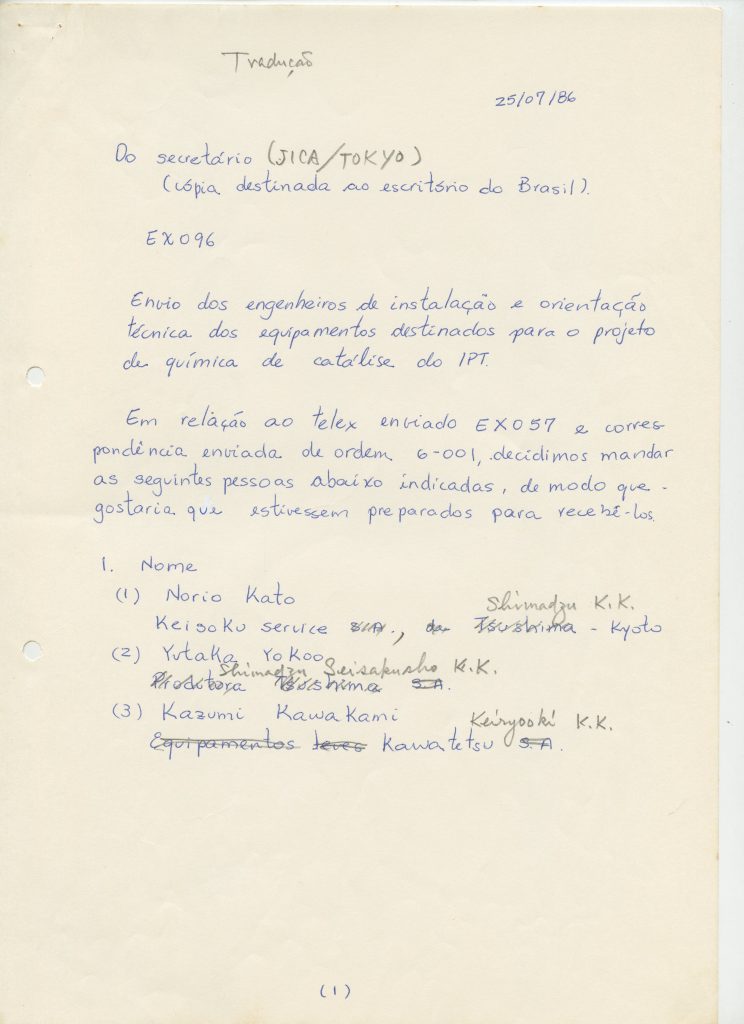 Tradução
25/07/86
Do secretário (JICA/TOKYO)
(cópia destinada ao escritório do Brasil).
EX096
Envio dos engenheiros de instalação e orientação
técnica dos equipamentos destinados para o projeto
de química de catálise do IPT.
Em relação ao telex enviado EX057 e corres
pondência enviada de ordem 6-001, decidimos mandar
as seguintes pessoas abaixo indicadas, de modo que
gostaria que estivessem preparados para recebê-los.
1. Nome
(1) Norio Kato
Shimadzu K.K.
Keisoku service S.A., da Tsushima - Kyoto
(2) Yutaka Yokoo
Shimadzu Seisakusho K.K.
Produtora Tsushima S.A.
(3) Kazumi Kawakami
Keiryooki K.K.
Equipamentos leves Kawatetsu S.A.
(1)